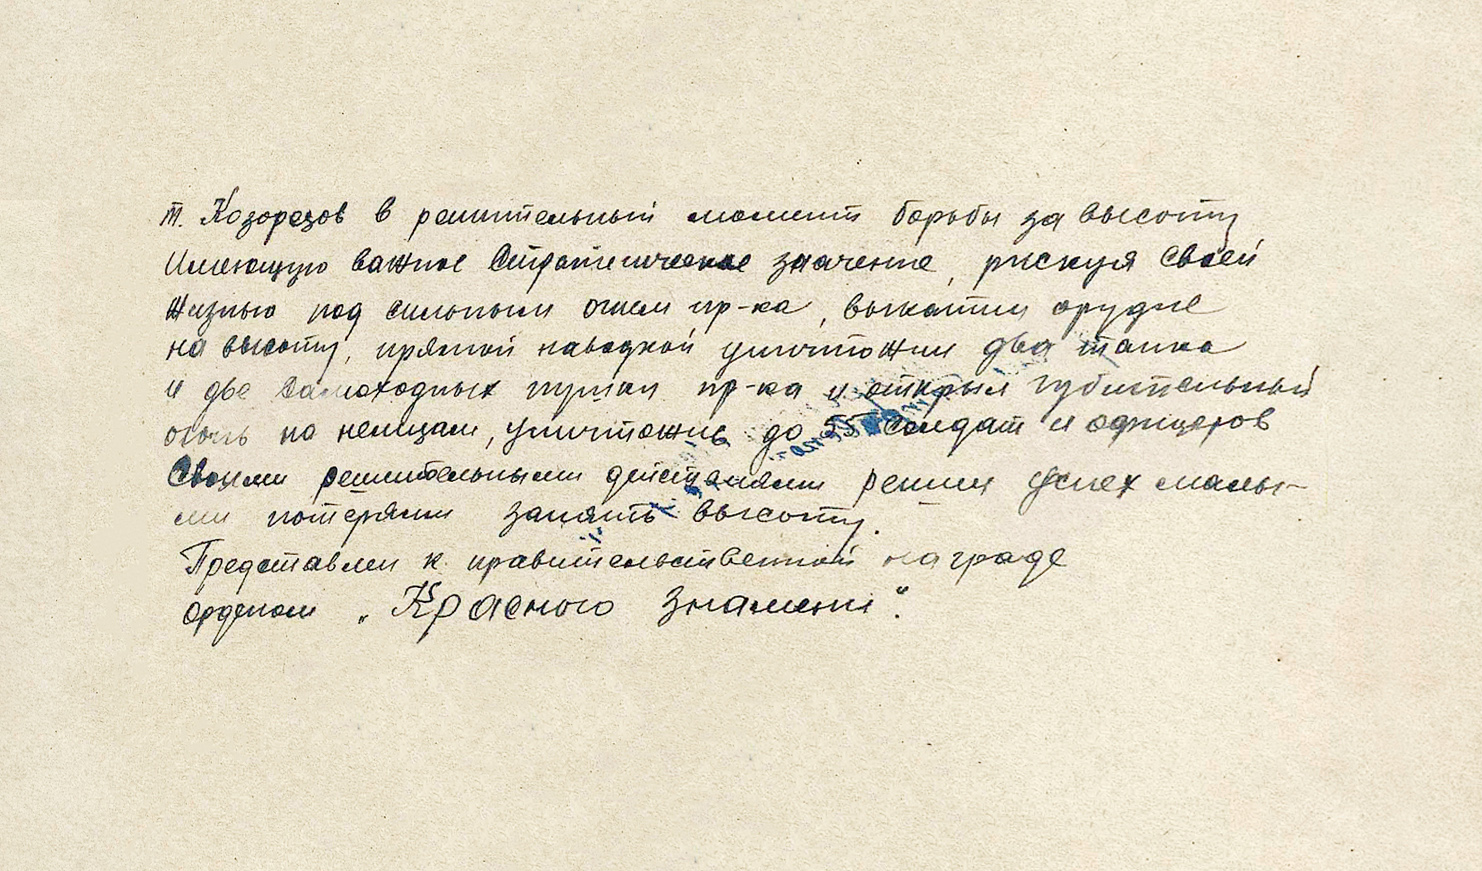 т. Козорезов в решительный момент борьбы за высоту
имеющую важное стратегическое значение, рискуя своей
жизнью под сильным огнем пр-ка, выкатил орудие
на высоту, прямой наводкой уничтожил два танка
и две самоходных пушки пр-ка и открыл губительный
огонь по немцам, уничтожив до 55 солдат и офицеров
Своими решительными действиями решил успех малы-
ми потерями занять высоту.
Представлен к правительственной награде
орденом „Красного Знамени".